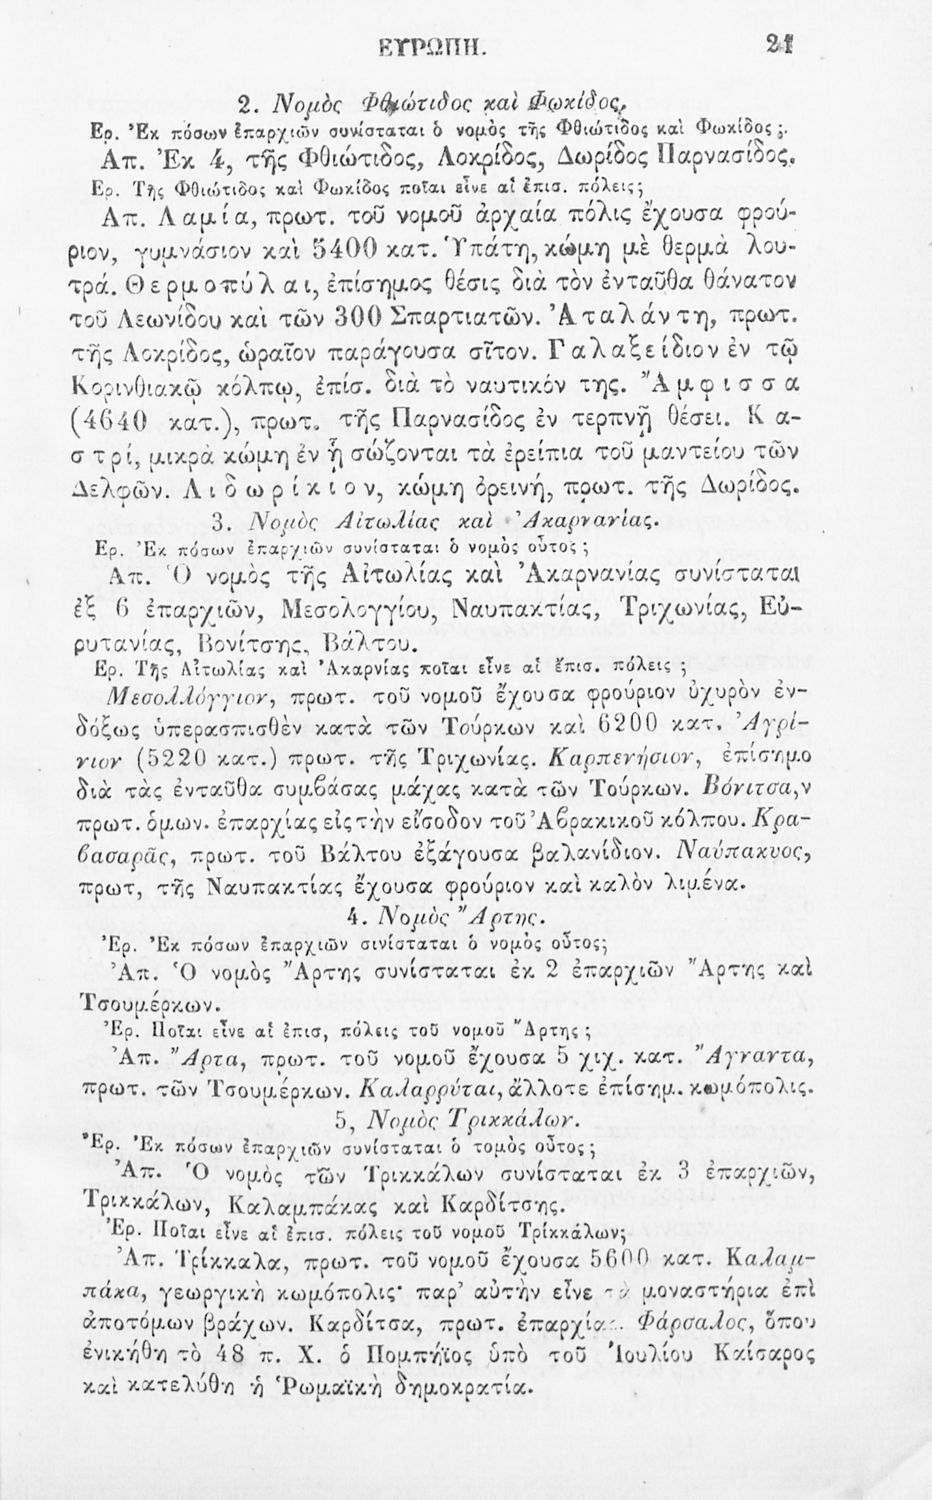 ΕΥΡΩΠΗ. 21
2. Νομὸς Φθιώτιδος καὶ Φωκίδος.
Ερ. Ἐκ πόσων ἐπαρχιῶν συνίσταται ὁ νομὸς τῆς Φθιώτιδος καὶ Φωκίδος ;.
Απ. Ἐκ 4, τῆς Φθιώτιδος, Λοκρίδος, Δωρίδος Παρνασίδος.
Ερ. Τῆς Φθιώτιδος καὶ Φωκίδος ποῖαι εἶνε αἱ ἐπισ. πόλεις;
Απ. Λαμία, πρωτ. τοῦ νομοῦ ἀρχαία πόλις ἔχουσα φρού-
ριον, γυμνάσιον καὶ 5400 κατ. Ὑπάτη, κώμη μὲ θερμὰ λου-
τρά. Θερμοπύλαι, ἐπίσημος θέσις διὰ τὸν ἐνταῦθα θάνατον
τοῦ Λεωνίδου καὶ τῶν 300 Σπαρτιατῶν. Ἀταλάντη, πρωτ.
τῆς Λοκρίδος, ὡραῖον παράγουσα σῖτον. Γαλαξείδιον ἐν τῷ
Κορινθιακῷ κόλπῳ, ἐπίσ. διὰ τὸ ναυτικόν της. Ἄμφισσα
(4640 κατ.), πρωτ. τῆς Παρνασίδος ἐν τερπνῇ θέσει. Κα-
στρί, μικρὰ κώμη ἐν ᾗ σώζονται τὰ ἐρείπια τοῦ μαντείου τῶν
Δελφῶν. Λιδωρίκιον, κώμη ὀρεινή, πρωτ. τῆς Δωρίδος.
3. Νομὸς Αἰτωλίας καὶ Ἀκαρνανίας.
Ερ. Ἐκ πόσων ἐπαρχιῶν συνίσταται ὁ νομὸς οὗτος ;
Απ. Ὁ νομὸς τῆς Αἰτωλίας καὶ Ἀκαρνανίας συνίσταται
ἐξ 6 ἐπαρχιῶν, Μεσολογγίου, Ναυπακτίας, Τριχωνίας, Εὐ-
ρυτανίας, Βονίτσης, Βάλτου.
Ερ. Τῆς Αἰτωλίας καὶ Ἀκαρνίας ποῖαι εἶνε αἱ ἔπισ. πόλεις ;
Μεσολλόγγιον, πρωτ. τοῦ νομοῦ ἔχουσα φρούριον ὀχυρὸν ἐν-
δόξως ὑπερασπισθὲν κατὰ τῶν Τούρκων καὶ 6200 κατ. Ἀγρί-
νιον (5220 κατ.) πρωτ. τῆς Τριχωνίας. Καρπενήσιον, ἐπίσημο
διὰ τὰς ἐνταῦθα συμβάσας μάχας κατὰ τῶν Τούρκων. Βόνιτσα,ν
πρωτ. ὁμων. ἐπαρχίας εἰς τὴν εἴσοδον τοῦ Ἀβρακικοῦ κόλπου. Κρα-
βασαρᾶς, πρωτ. τοῦ Βάλτου ἐξάγουσα βαλανίδιον. Ναύπακυος,
πρωτ, τῆς Ναυπακτίας ἔχουσα φρούριον καὶ καλὸν λιμένα.
4. Νομὸς Ἄρτης.
Ἐρ. Ἐκ πόσων ἐπαρχιῶν σινίσταται ὁ νομὸς οὗτος;
Ἀπ. Ὁ νομὸς Ἄρτης συνίσταται ἐκ 2 ἐπαρχιῶν Ἄρτης καὶ
Τσουμέρκων.
Ἐρ. Ποῖαι εἶνε αἱ ἐπισ, πόλεις τοῦ νομοῦ Ἄρτης ;
Ἀπ. Ἄρτα, πρωτ. τοῦ νομοῦ ἔχουσα 5 χιχ. κατ. Ἄγναντα,
πρωτ. τῶν Τσουμέρκων. Καλαρρύται, ἄλλοτε ἐπίσημ. κωμόπολις.
5, Νομὸς Τρικκάλων.
Ἐρ. Ἐκ πόσων ἐπαρχιῶν συνίσταται ὁ τομὸς οὗτος;
Ἀπ. Ὁ νομὸς τῶν Τρικκάλων συνίσταται ἐκ 3 ἐπαρχιῶν,
Τρικκάλων, Καλαμπάκας καὶ Καρδίτσης.
Ἐρ. Ποῖαι εἶνε αἱ ἐπισ. πόλεις τοῦ νομοῦ Τρίκκάλων;
Ἀπ. Τρίκκαλα, πρωτ. τοῦ νομοῦ ἔχουσα 5600 κατ. Καλαμ-
πάκα, γεωργικὴ κωμόπολις· παρ' αὐτὴν εἶνε τὰ μοναστήρια ἐπὶ
ἀποτόμων βράχων. Καρδίτσα, πρωτ. ἐπαρχίας. Φάρσαλος, ὅπου
ἐνικήθη τὸ 48 π. Χ. ὁ Πομπήϊος ὑπὸ τοῦ Ἰουλίου Καίσαρος
καὶ κατελύθη ἡ Ῥωμαϊκὴ δημοκρατία.